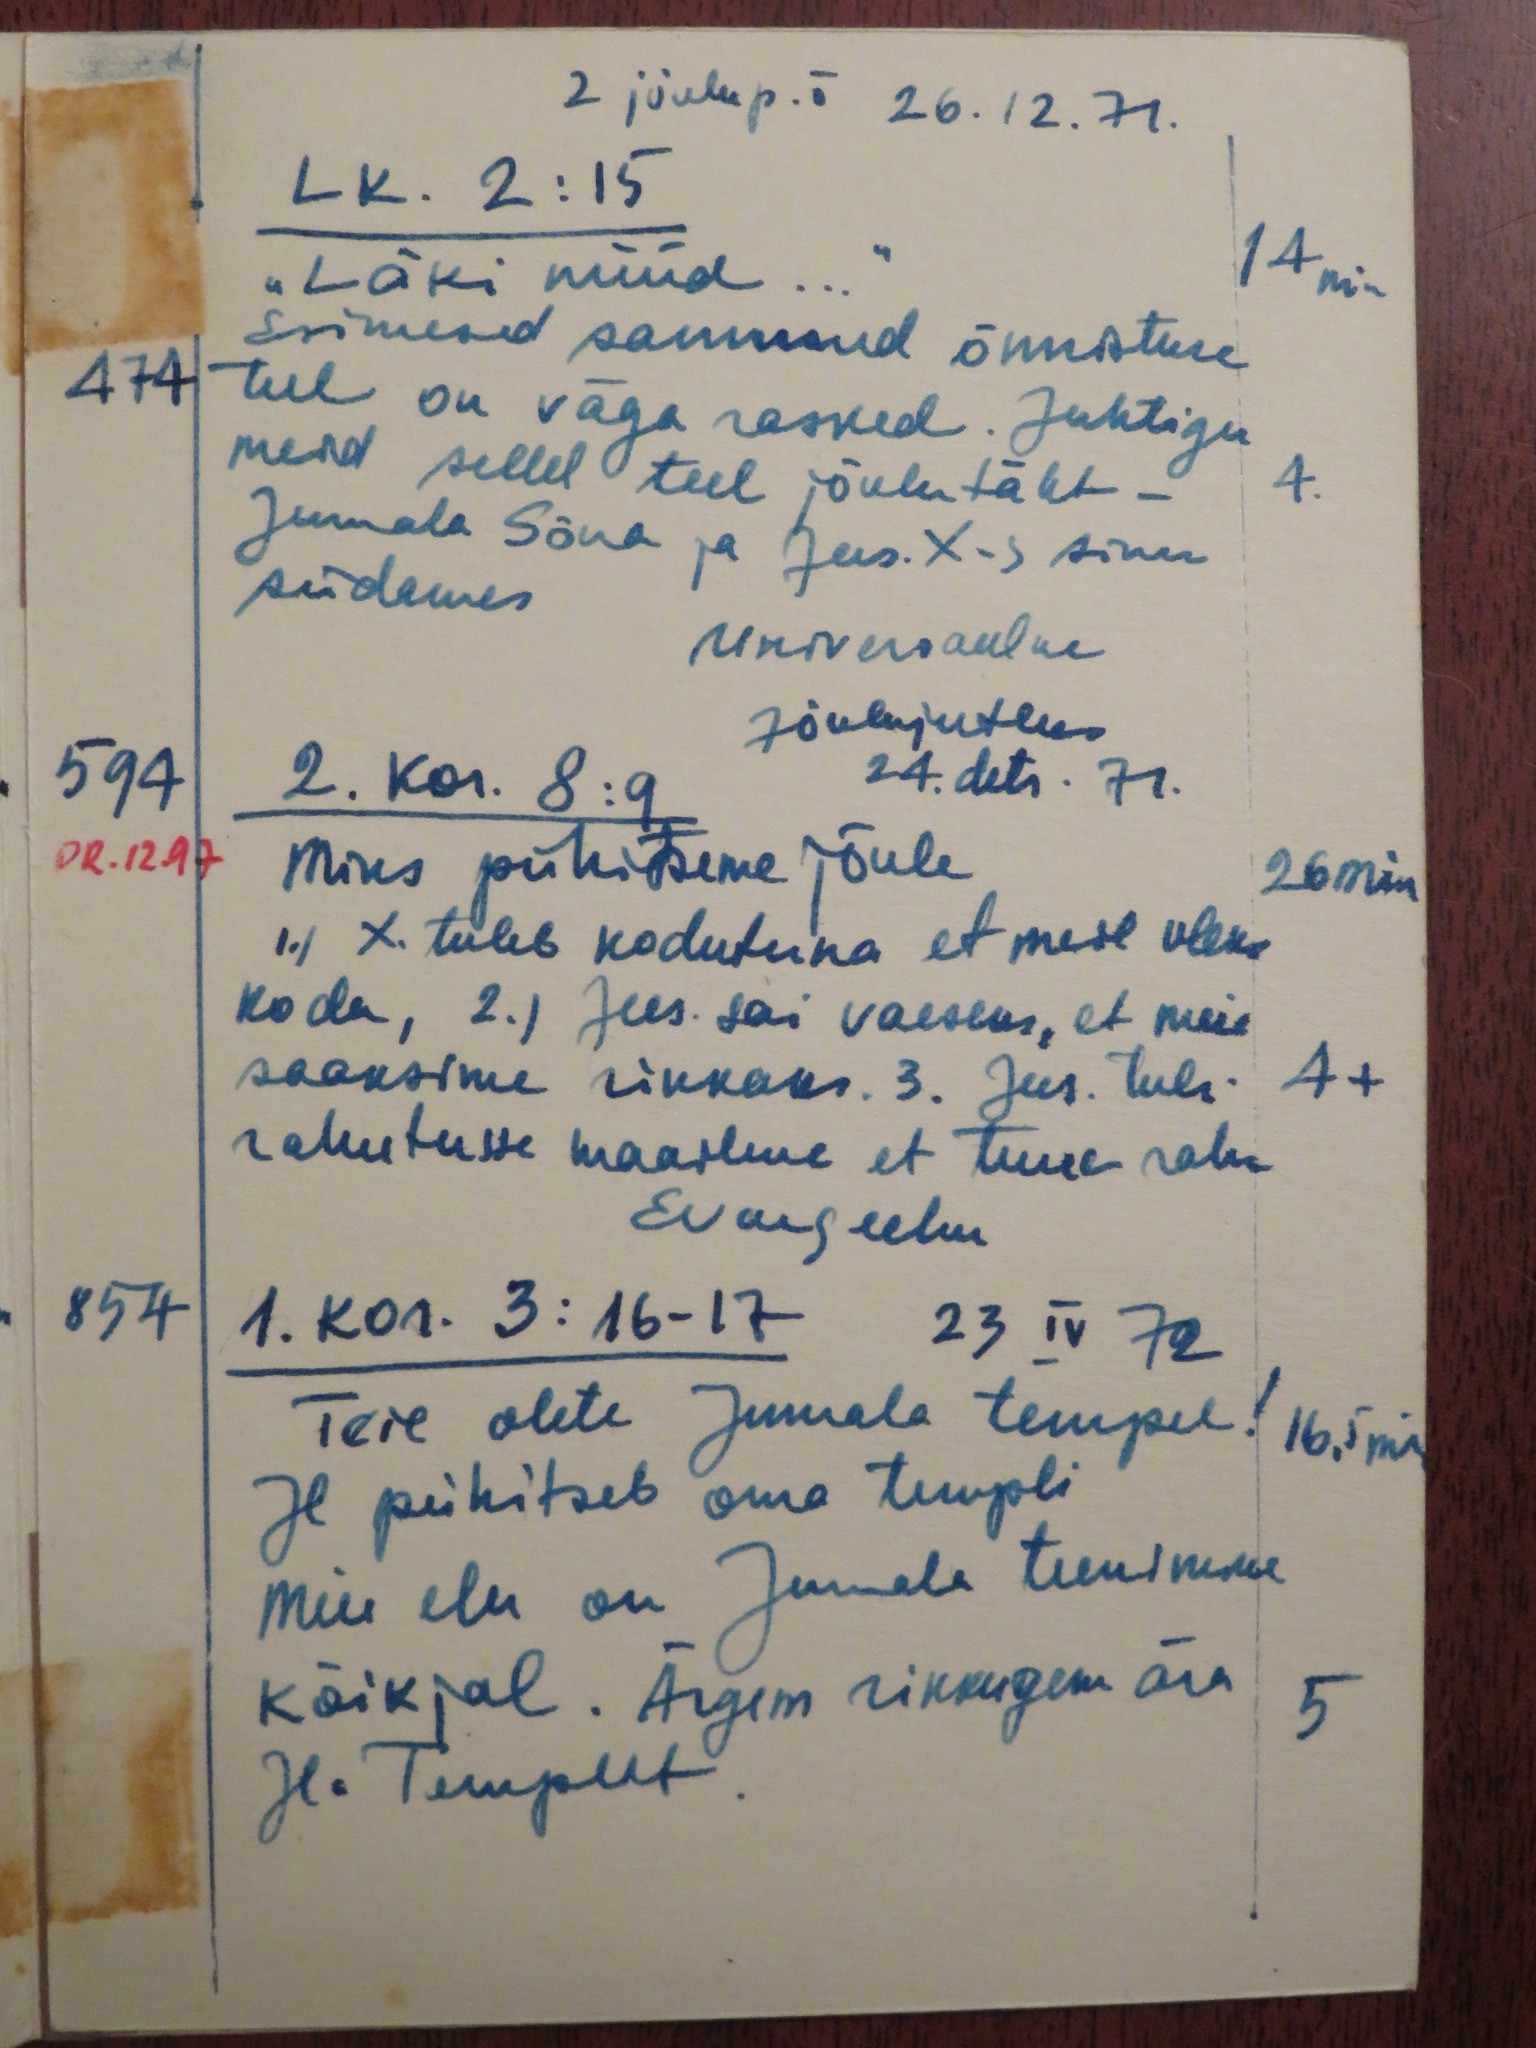 2 jõulup. õ 26.12.71.
Lk. 2:15
„Läki nüüd ..."
14 min
Esimesed sammud õnnistuse
474 teel on väga rasked. Juhtigu
meid sellel teel jõulutäht - 4.
Jumala Sõna ja Jees. X-s sinu
südames
Universaalne
Jõulujutlus
594 2. Kor. 8:9 24. dets. 71.
DR.12.97 Miks pühitseme jõule 26 min
1.) X. tuleb kodutuna et meil oleks
kodu, 2.) Jees. sai vaeseks, et meie
saaksime rikkaks. 3. Jees. tuli 4+
rahutusse maailma et tuua rahu
Evangeelium
854 1. Kor. 3:16-17 23 IV 72
Teie olete Jumala tempel! 16,5 min
Jl pühitseb oma templi
Meie elu on Jumala teenimine
kõikjal. Ärgem rikkugem ära 5
Jl. Templit.